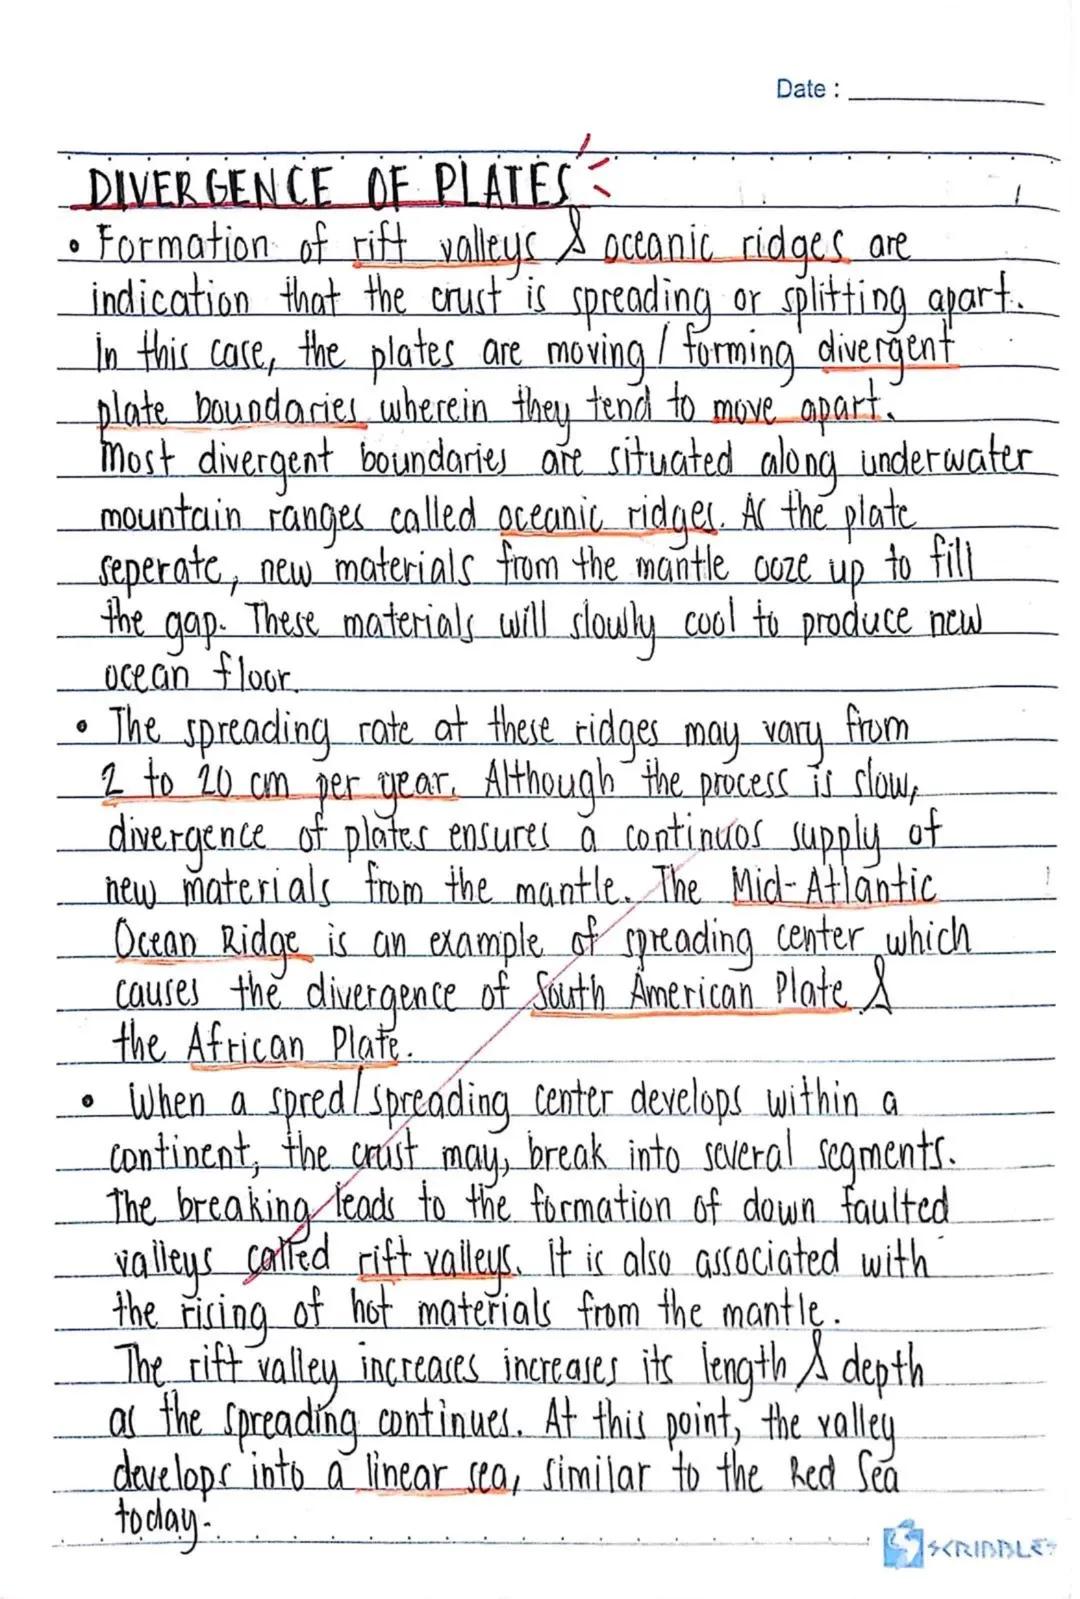 Date :
DIVERGENCE OF PLATES
• Formation of rift valleys & oceanic ridges are
indication that the crust is spreading or splitting apart.
in this case, the plates are moving / forming divergent
plate boundaries wherein they tend to move apart.
Most divergent boundaries are situated along underwater
mountain ranges called oceanic ridges. As the plate
seperate, new materials from the mantle ooze up to fill
the gap. These materials will slowly cool to produce new
ocean floor.
• The spreading rate at these ridges may vary from
2 to 20 cm per year. Although the process is slow,
divergence of plates ensures a continuos supply of
new materials from the mantle. The Mid-Atlantic
Ocean Ridge is an example of spreading center which
causes the divergence of South American Plate &
the African Plate.
• When a spred/spreading center develops within a
continent, the crust may, break into several segments.
The breaking leads to the formation of down faulted
valleys called rift valleys. It is also associated with
the rising of hot materials from the mantle.
The rift valley increases increases its length & depth
as the spreading continues. At this point, the valley
develops into a linear sea, similar to the Red Sea
today.
SCRIBBLES